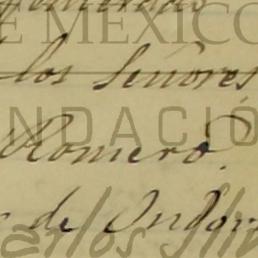 E MEXICO
los Señores
NDACIÓ
Romero
de Indar
arlos Sli